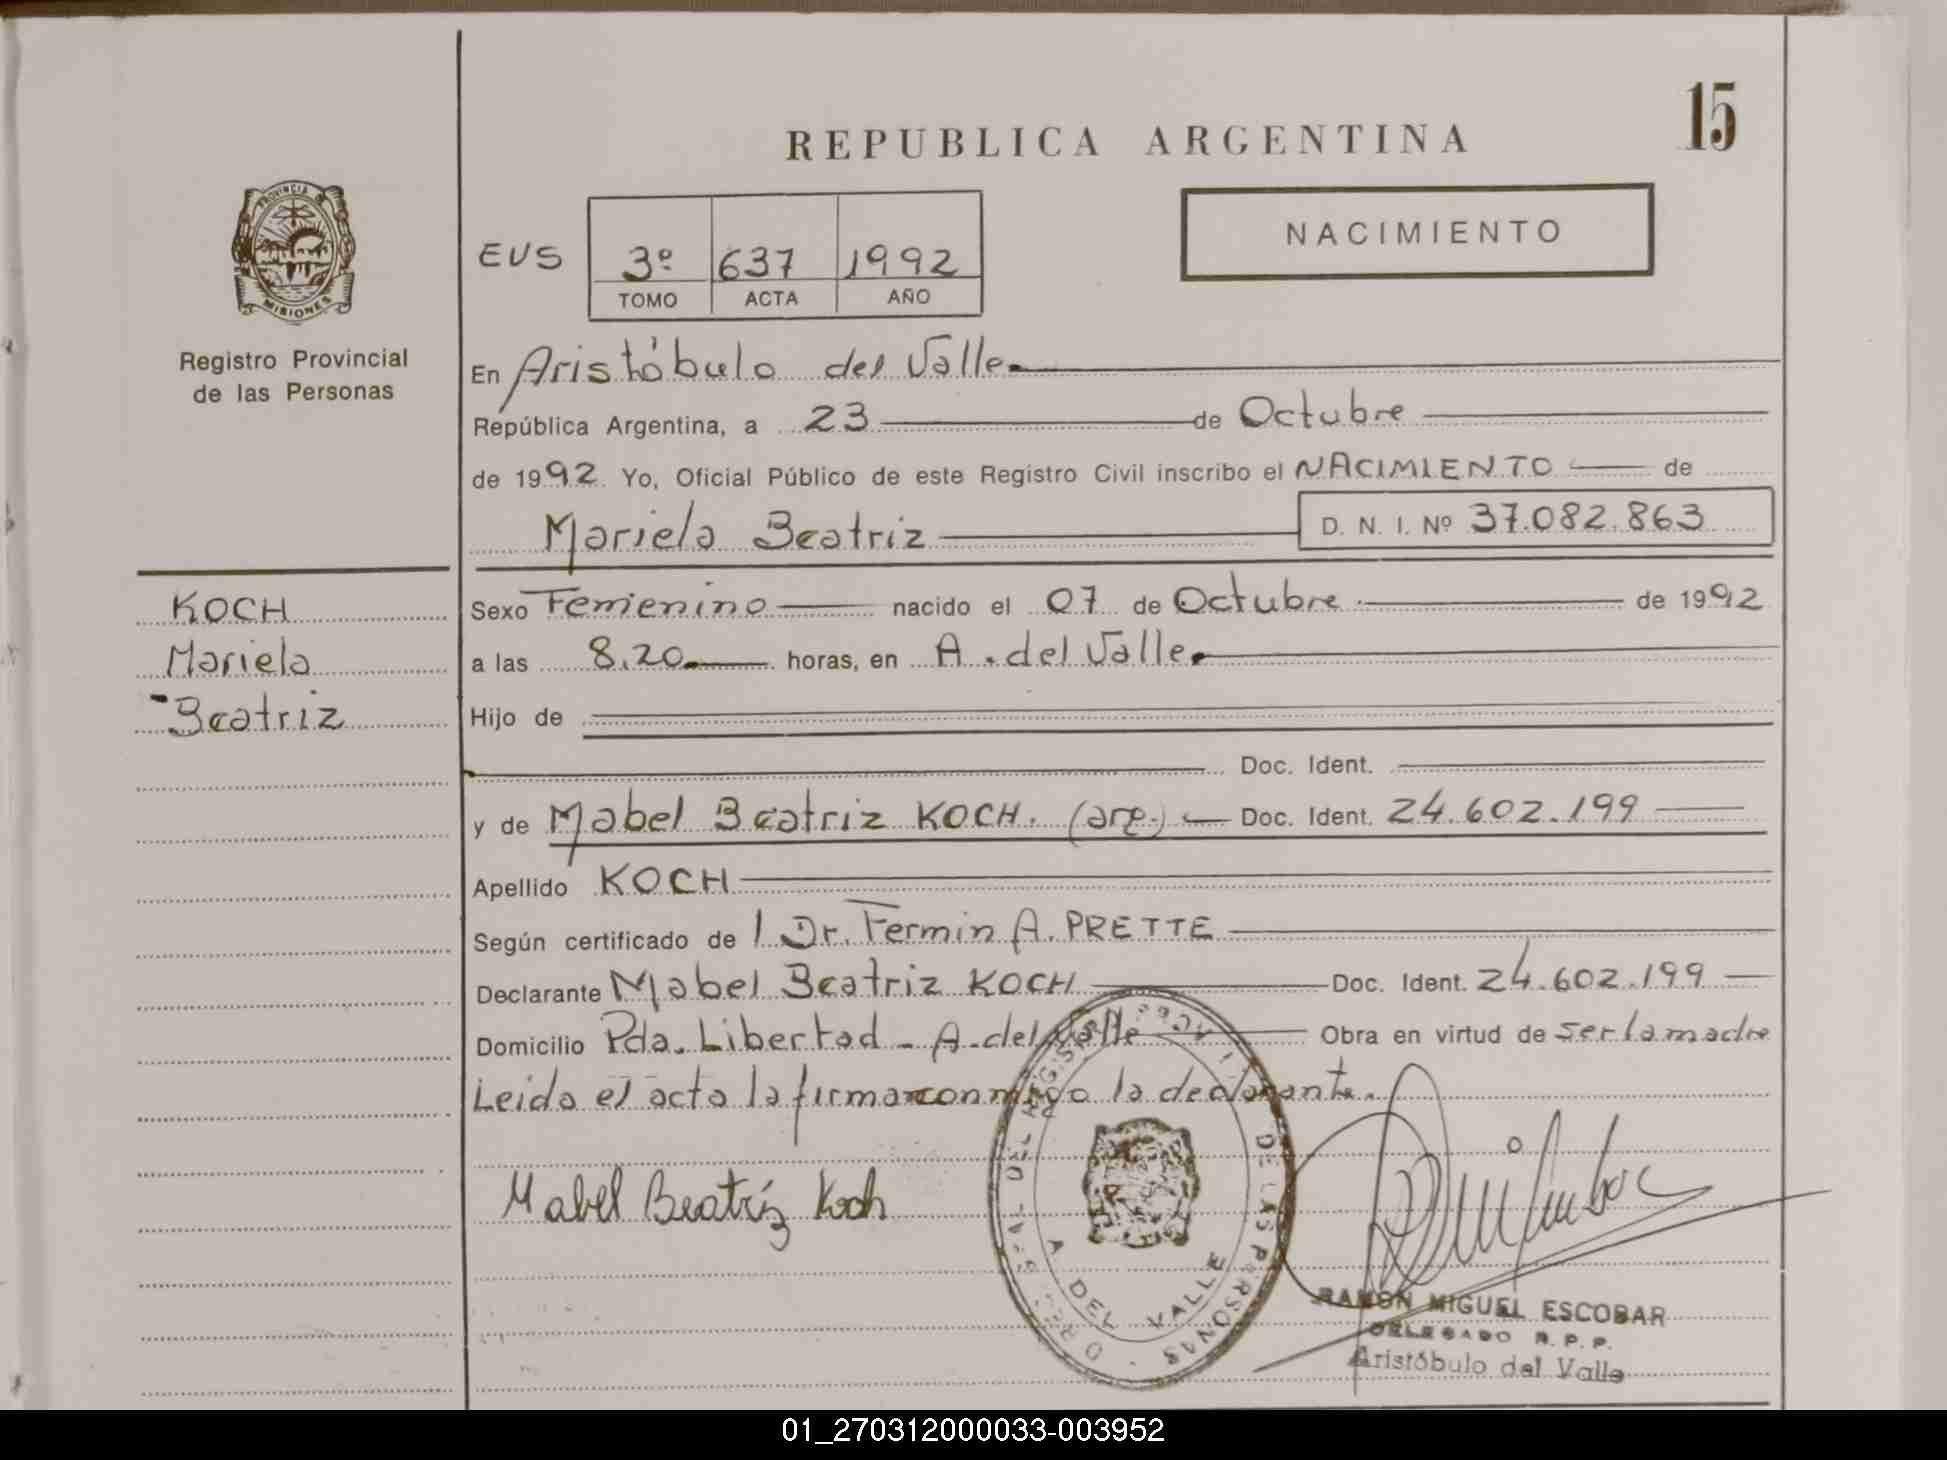 15
REPUBLICA ARGENTINA
PROVINCIA
MISIONES
NACIMIENTO
EVS 3º 637 1992
TOMO ACTA AÑO
Registro Provincial
de las Personas
En Aristóbulo del Valle
República Argentina, a 23 de Octubre
de 1992 Yo, Oficial Público de este Registro Civil inscribo el NACIMIENTO de
Mariela Beatriz D. N. I. Nº 37.082.863
KOCH
Mariela
Beatriz
Sexo Femenino nacido el 07 de Octubre de 1992
a las 8.20 horas, en A. del Valle
Hijo de
Doc. Ident.
y de Mabel Beatriz KOCH. (arg.) Doc. Ident. 24.602.199
Apellido KOCH
Según certificado de l Dr. Fermin A. PRETTE
Declarante Mabel Beatriz KOCH Doc. Ident. 24.602.199
Domicilio Pda. Libertad - A. del Valle Obra en virtud de ser la madre
Leida el acta la firma conmigo la declarante.
Mabel Beatríz Koch
DEL REGISTRO
DE LAS PERSONAS
A. DEL VALLE
RAMON MIGUEL ESCOBAR
DELEGADO R. P. P.
Aristóbulo del Valle
01_270312000033-003952